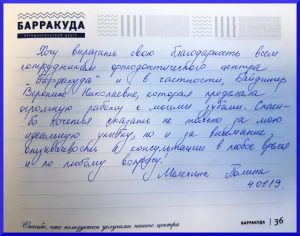 БАРРАКУДА
ОРТОДОНТИЧЕСКИЙ ЦЕНТР
Хочу выразить свою благодарность всем
сотрудникам ортодонтического центра
"Барракуда" и в частности,
Веронике Николаевне, которая проделала
огромную работу с моими зубами. Спаси-
бо хочется сказать не только за мою
идеальную улыбку, но и за внимание,
отзывчивость и консультации в любое время
и по любому вопросу.
Полина
4.01.19.
Спасибо, что пользуетесь услугами нашего центра
БАРРАКУДА 36